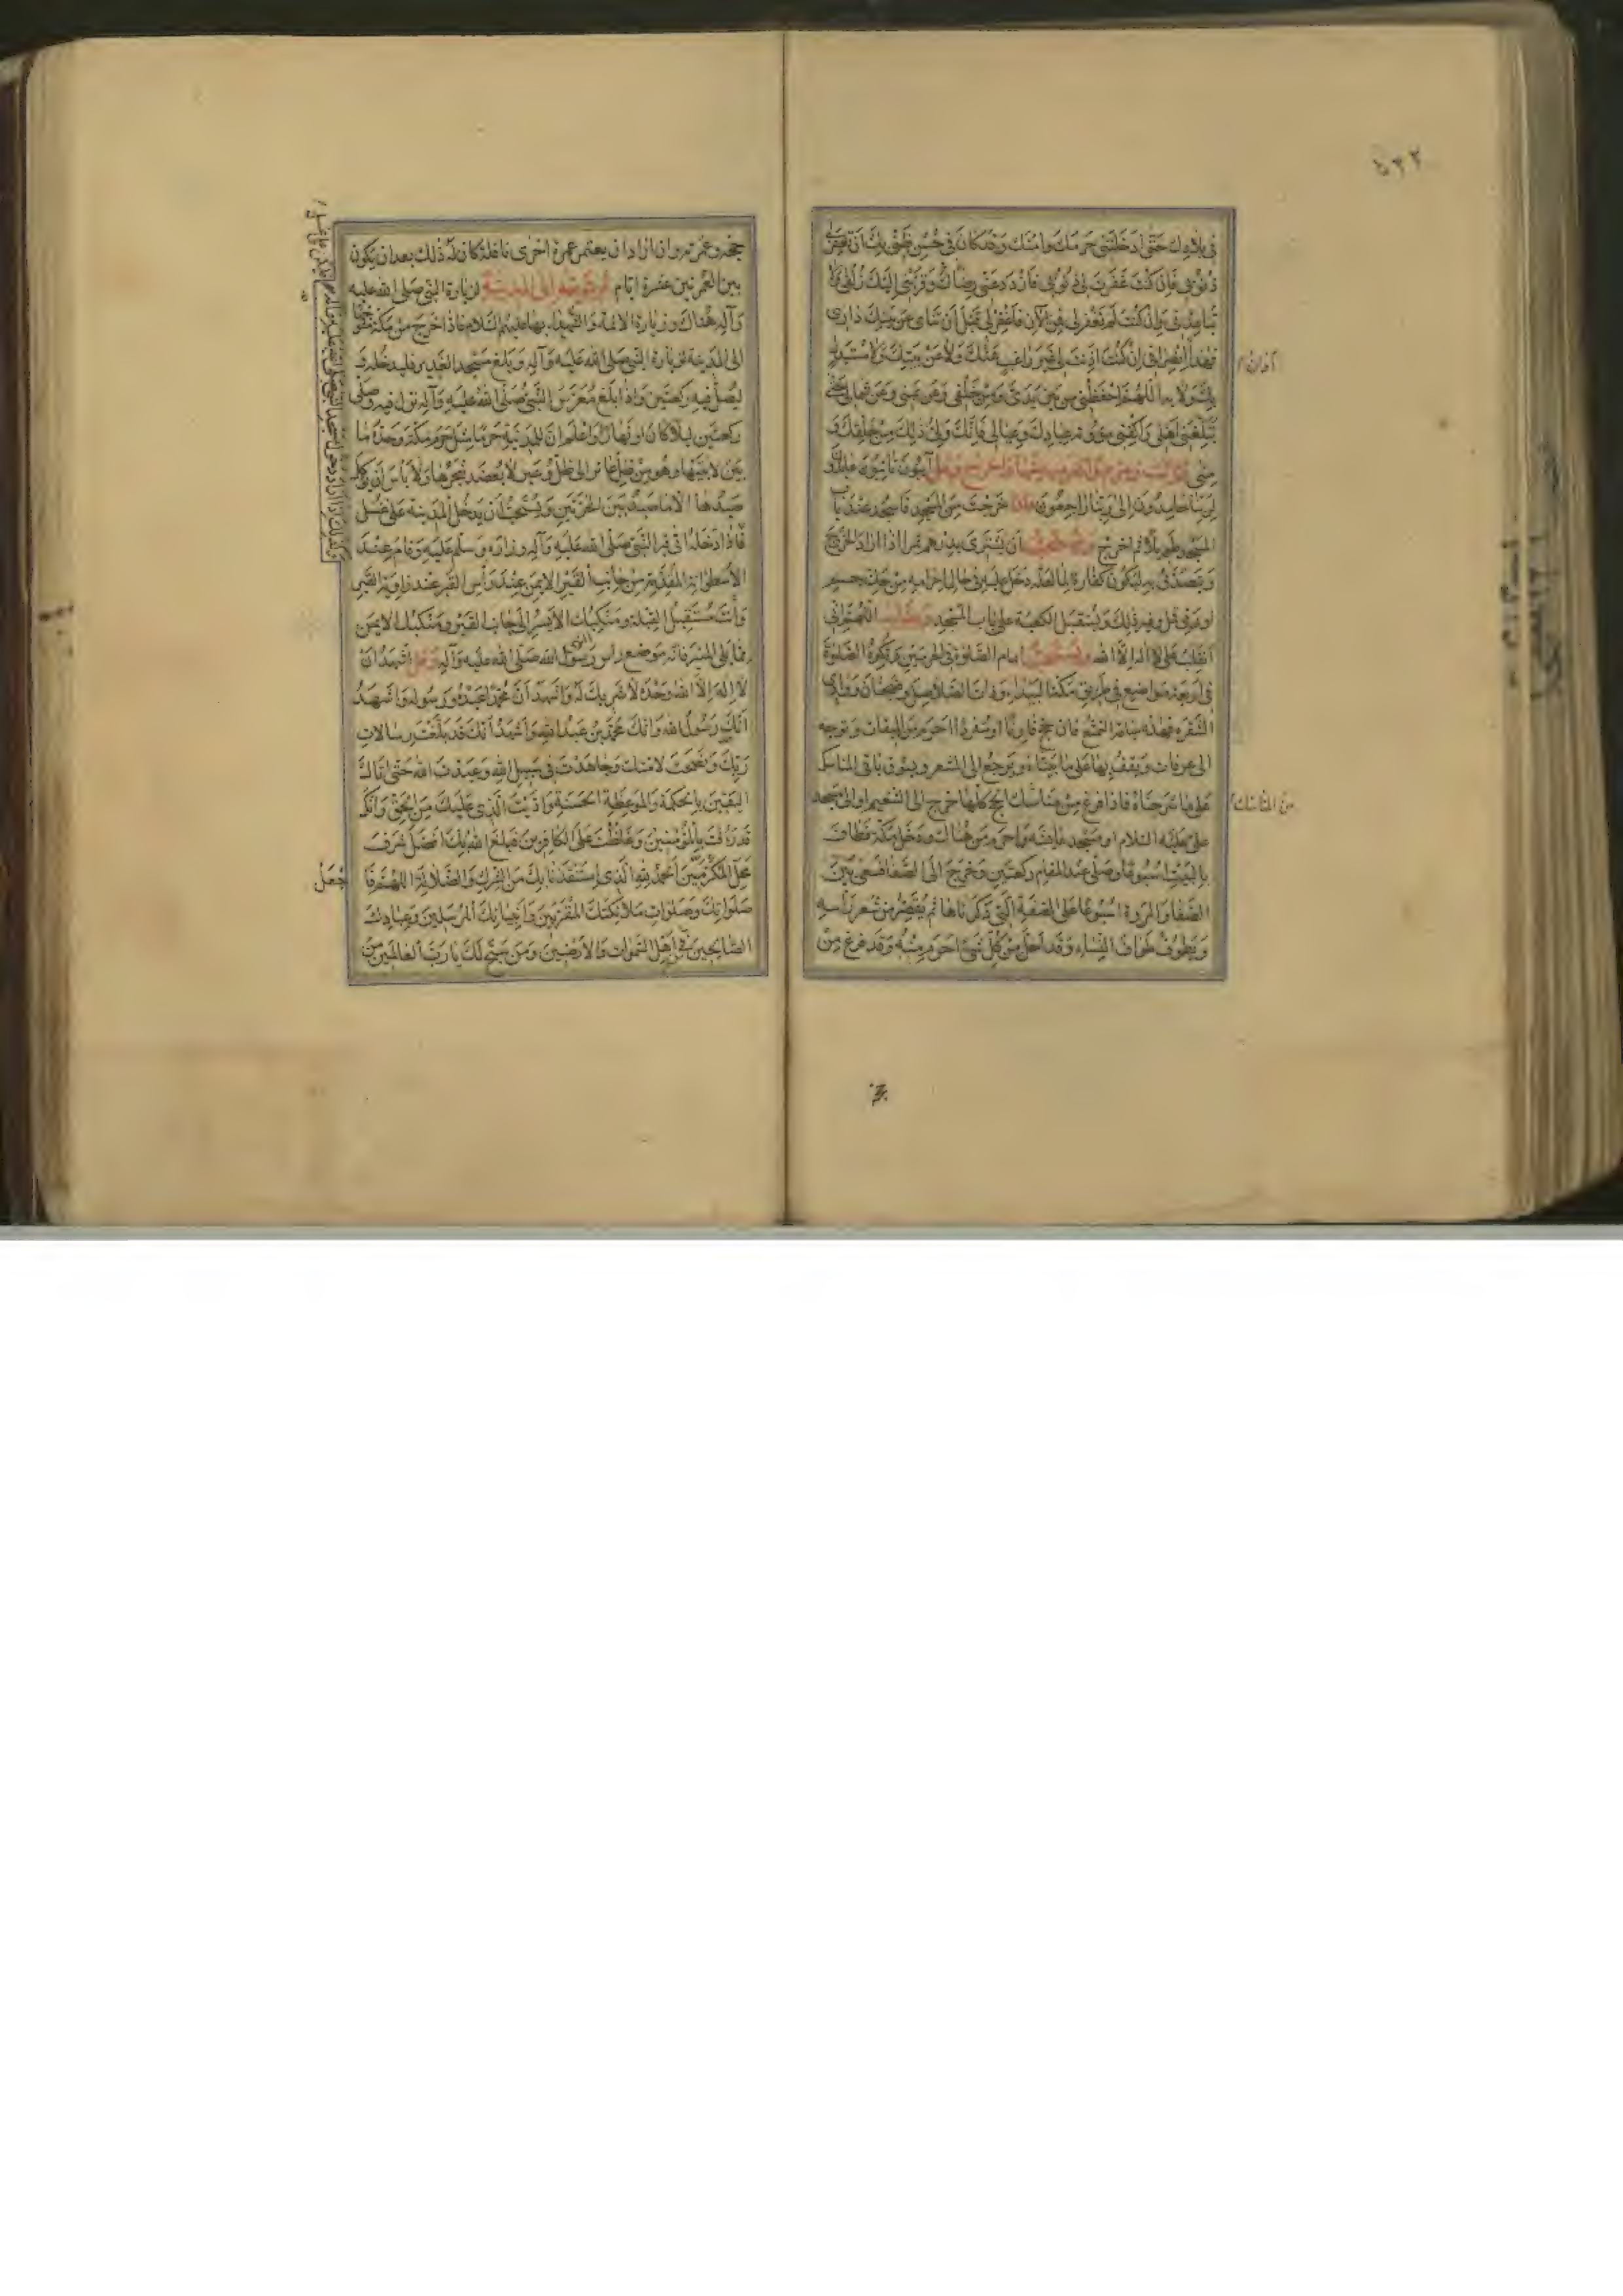 ٥٢٢
في بلادك حتى ادخلتني حرمك وامنك وقد كان في حسن ظني بك ان تغفر لي
ذنوبي فان كنت غفرت لي ذنوبي فازدد عني رضا وقربني اليك زلفى ولا
تباعدني وان كنت لم تغفر لي فمن الآن فاغفر لي قبل ان تنأى عن بيتك داري
فهذا اوان انصرافي ان كنت اذنت لي غير راغب عنك ولا عن بيتك ولا مستبدل
بك ولا به اللهم احفظني من بين يدي ومن خلفي وعن يميني وعن شمالي حتى
تبلغني اهلي واكفني مؤونة عبادك وعيالي فانك ولي ذلك من خلقك و
مني آئبون تائبون عابدون
لربنا حامدون الى ربنا راجعون فاذا خرجت من المسجد فاسجد عند باب
المسجد طويلا ثم اخرج ويستحب ان يشتري بدرهم تمرا اذا اراد الخروج
ويتصدق به ليكون كفارة لما لعله دخل عليه في حال احرامه من حك جسم
او رمي قمل وغير ذلك ويستقبل الكعبة على باب المسجد اللهم اني
انقلب على لا اله الا الله ويستحب اتمام الصلوة في الحرمين وتكره الصلوة
في اربعة مواضع في طريق مكة البيداء وذات الصلاصل وضجنان ووادي
الشقرة فهذه سياقة التمتع فان حج قارنا او مفردا احرم من الميقات وتوجه
الى عرفات ويقف بها على ما بيناه ويرجع الى المشعر ويسوق باقي المناسك
على ما شرحناه فاذا فرغ من مناسك الحج كلها خرج الى التنعيم او الى مسجد
علي عليه السلام او مسجد عايشة واحرم من هناك ودخل مكة فطاف
بالبيت اسبوعا وصلى عند المقام ركعتين وخرج الى الصفا فسعى بين
الصفا والمروة اسبوعا على الصفة التي ذكرناها ثم يقصر من شعر رأسه
ويطوف طواف النساء وقد احل من كل شيء احرم منه وقد فرغ من
من المناسك
حجه وعمرته وان اراد ان يعتمر عمرة اخرى نافلة كان له ذلك بعد ان يكون
بين العمرتين عشرة ايام ثم توجه الى المدينة لزيارة النبي صلى الله عليه
وآله هناك وزيارة الائمة والشهداء بها عليهم السلام فاذا خرج من مكة متوجها
الى المدينة لزيارة النبي صلى الله عليه وآله وبلغ مسجد الغدير فليدخله و
ليصل فيه ركعتين واذا بلغ معرس النبي صلى الله عليه وآله نزل فيه وصلى
ركعتين ليلا كان او نهارا واعلم ان للمدينة حرما مثل حرم مكة وحده ما
بين لابتيها وهو من ظل عاير الى ظل وعير لا يعضد شجرها ولا بأس ان يؤكل
صيدها الا ما صيد بين الحرتين ويستحب ان يدخل المدينة على غسل
فاذا دخلها اتى قبر النبي صلى الله عليه وآله وزاره وسلم عليه وقام عند
الاسطوانة المقدمة من جانب القبر الايمن عند رأس القبر عند زاوية القبر
وانت مستقبل القبلة ومنكبك الايسر الى جانب القبر ومنكبك الايمن
مما يلي المنبر فانه موضع رأس رسول الله صلى الله عليه وآله وقل اشهد ان
لا اله الا الله وحده لا شريك له واشهد ان محمدا عبده ورسوله واشهد
انك رسول الله وانك محمد بن عبد الله واشهد انك قد بلغت رسالات
ربك ونصحت لامتك وجاهدت في سبيل الله وعبدت الله حتى اتاك
اليقين بالحكمة والموعظة الحسنة واديت الذي عليك من الحق وانك
قد رؤفت بالمؤمنين وغلظت على الكافرين فبلغ الله بك افضل شرف
محل المكرمين الحمد لله الذي استنقذنا بك من الشرك والضلالة اللهم فا
جعل
صلواتك وصلوات ملائكتك المقربين وانبيائك المرسلين وعبادك
الصالحين واهل السموات والارضين ومن سبح لك يا رب العالمين من